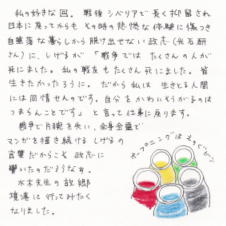 私の好きな回。戦後シベリアで長く抑留され
日本に戻ってからも その時の悲惨な体験に傷つき
自堕落な暮らしから脱け出せない政志（光石研
さん）に、しげるが「戦争ではたくさんの人が
死にました。私の戦友もたくさん死にました。皆
生きたかったろうに。だから私は生きとる人間
には同情せんのです。自分をかわいそうがるのは
つまらんことです」と言って仕事に戻ります。
戦争で片腕を失い、全身全霊で
マンガを描き続けるしげるの
言葉だからこそ政志に
響いたのだろうなぁ。
水木先生の故郷
境港に行ってみたく
なりました。
オープニングは